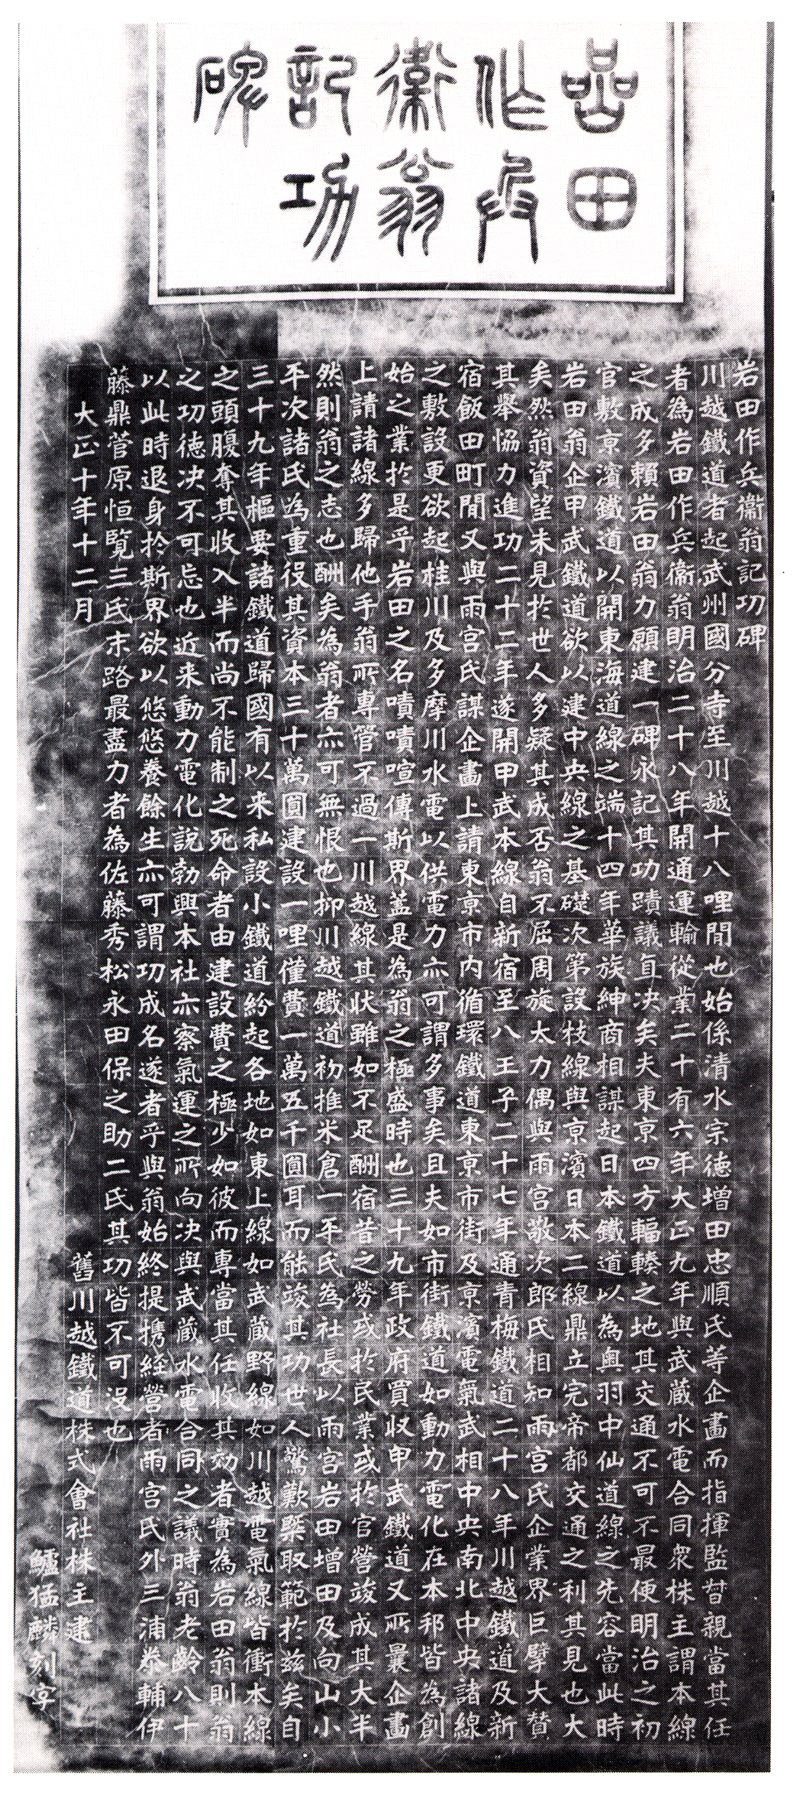 嵒田
作兵
衞翁
記功
碑
岩田作兵衞翁記功碑
川越鐵道者起武州國分寺至川越十八哩間也始係清水宗徳增田忠順氏等企畫而指揮監督親當其任
者為岩田作兵衞翁明治二十八年開通運輸從業二十有六年大正九年與武蔵水電合同衆株主謂本線
之成多賴岩田翁力願建一碑永記其功蹟議亘决矣夫東京四方輻輳之地其交通不可不最便明治之初
官敷京濱鐵道以開東海道線之端十四年華族紳商相謀起日本鐵道以為奥羽中仙道線之先容當此時
岩田翁企甲武鐵道欲以建中央線之基礎次第設枝線與京濱日本二線鼎立完帝都交通之利其見也大
矣然翁資望未見於世人多疑其成否翁不屈周旋太力偶與雨宮敬次郎氏相知雨宮氏企業界巨擘大賛
其擧恊力進功二十二年遂開甲武本線自新宿至八王子二十七年通青梅鐵道二十八年川越鐵道及新
宿飯田町間又與雨宮氏謀企畫上請東京市内循環鐵道東京市街及京濱電氣武相中央南北中央諸線
之敷設更欲起桂川及多摩川水電以供電力亦可謂多事矣且夫如市街鐵道如動力電化在本邦皆為創
始之業於是乎岩田之名嘖嘖喧傳斯界蓋是為翁之極盛時也三十九年政府買收甲武鐵道又所曩企畫
上請諸線多歸他手翁所專管不過一川越線其状雖如不足酬宿昔之勞或於民業或於官營竣成其大半
然則翁之志也酬矣為翁者亦可無恨也抑川越鐵道初推米倉一平氏為社長以雨宮岩田增田及向山小
平次諸氏為重役其資本三十萬圓建設一哩僅費一萬五千圓耳而能竣其功世人驚歎槩取範於茲矣自
三十九年樞要諸鐵道歸國有以来私設小鐵道紛起各地如東上線如武蔵野線如川越電氣線皆衝本線
之頭腹奪其收入半而尚不能制之死命者由建設費之極少如彼而專當其任收其効者實為岩田翁則翁
之功徳决不可忘也近来動力電化説勃興本社亦察氣運之所向决與武蔵水電合同之議時翁老齡八十
以此時退身於斯界欲以悠悠養餘生亦可謂功成名遂者乎與翁始終提携経營者雨宮氏外三浦泰輔伊
藤鼎菅原恒覧三氏末路最盡力者為佐藤秀松永田保之助二氏其功皆不可没也
大正十年十二月 舊川越鐵道株式會社株主建
鱸猛麟刻字